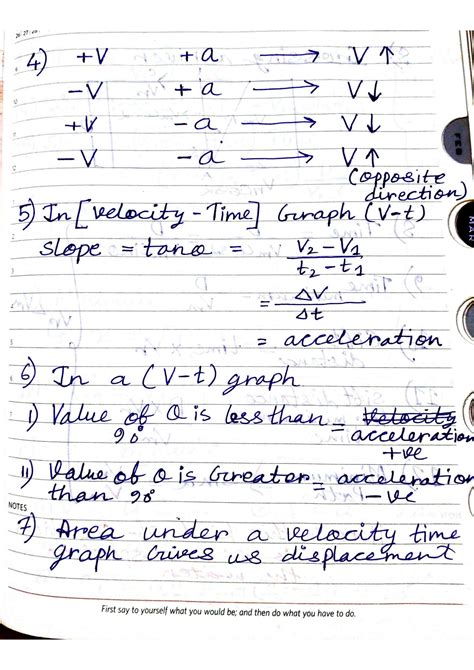 26 27 28
4) +V +a ⟶ V ↑
-V +a ⟶ V ↓
+V -a ⟶ V ↓
-V -a ⟶ V ↑
(opposite
direction)
5) In [velocity - Time] Graph (V-t)
slope = tanθ = V2 - V1 / t2 - t1
= ΔV / Δt
= acceleration
6) In a (V-t) graph
i) Value of θ is less than 90° = velocity acceleration +ve
ii) Value of θ is Greater than 90° = acceleration -ve
NOTES
7) Area under a velocity time
graph Gives us displacement
First say to yourself what you would be; and then do what you have to do.
FEB
MAR